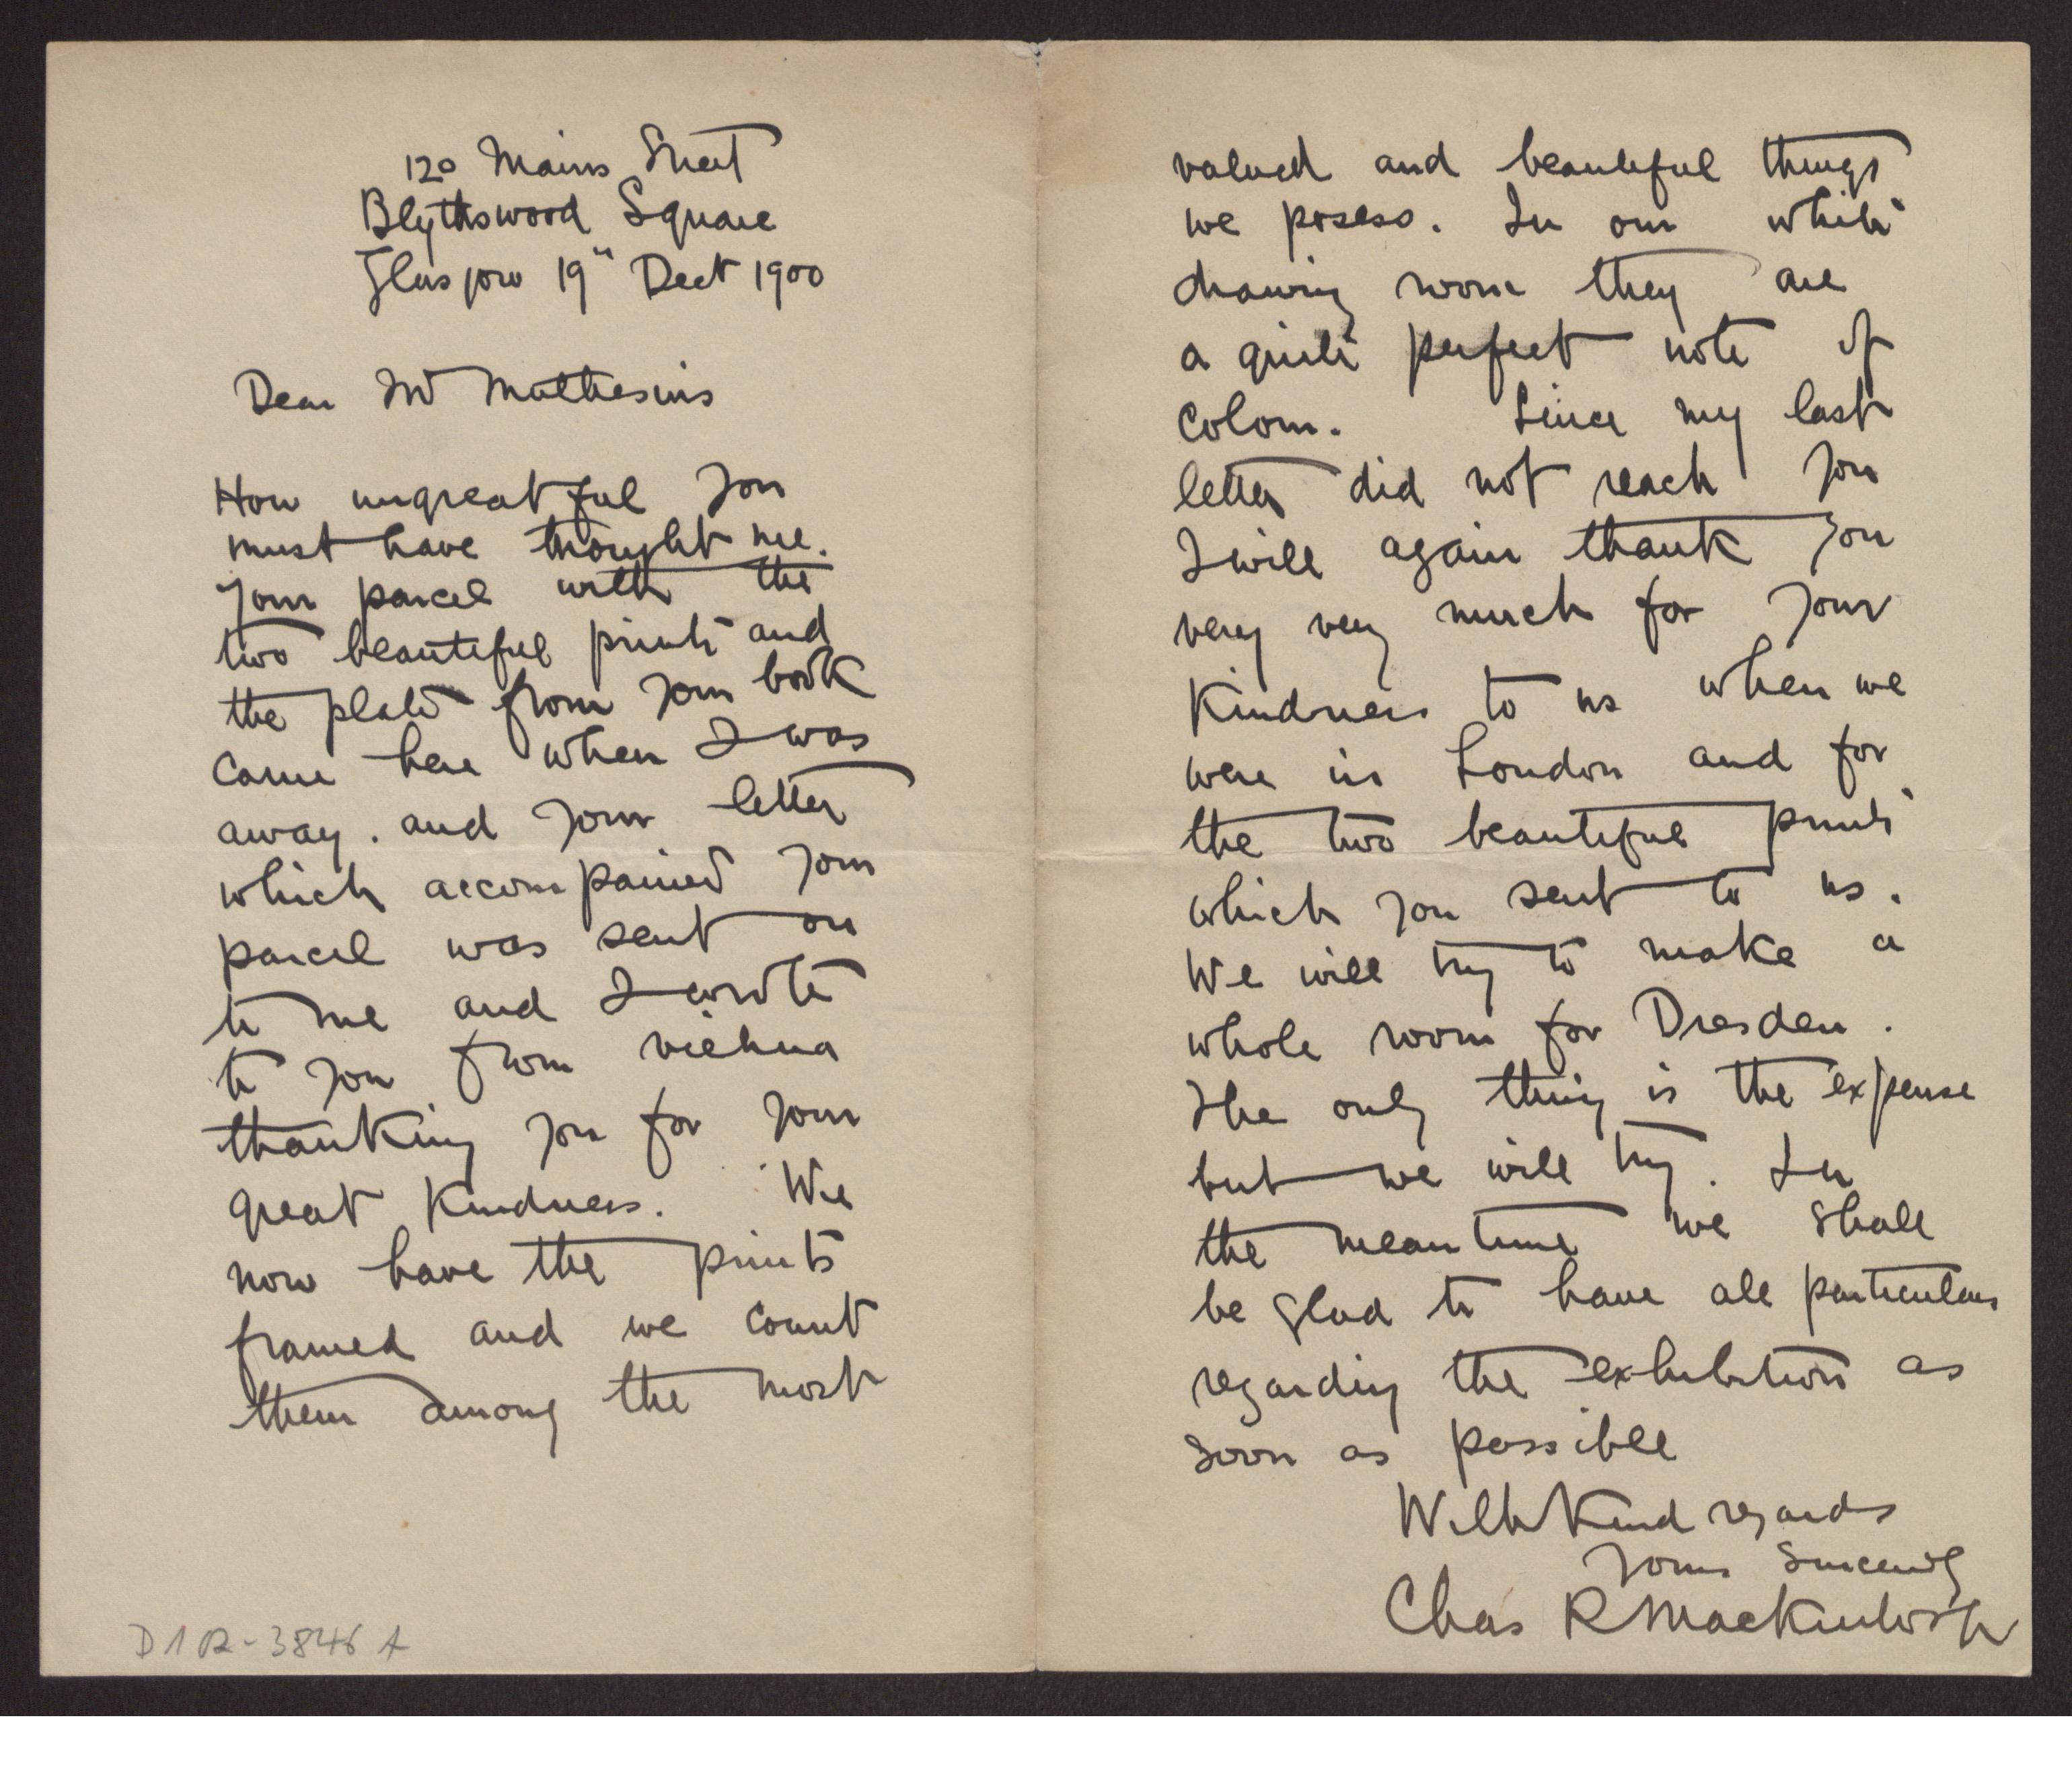 120 Mains Street
Blythswood Square
Glasgow 19" Dect 1900
Dear Mr Muthesius
How ungreatful you
must have thought me.
your parcel with the
two beautiful prints and
the plates from your book
came here when I was
away. and your letter
which accompained your
parcel was sent on
to me and I wrote
to you from vienna
thanking you for your
great Kindness. We
now have the prints
framed and we count
them among the most
valued and beautiful things
we posess. In our white
drawing room they are
a quite perfect note of
colour. Since my last
letter did not reach you
I will again thank you
very very much for your
Kindness to us when we
were in London and for
the two beautiful prints
which you sent to us.
We will try to make a
whole room for Dresden.
The only thing is the expense
but we will try. In
the meantime we shall
be glad to have all particulars
regarding the exhibition as
soon as possible
With Kind regards
Yours Sincerely
Chas R Mackintosh
D 1 R - 3846 A